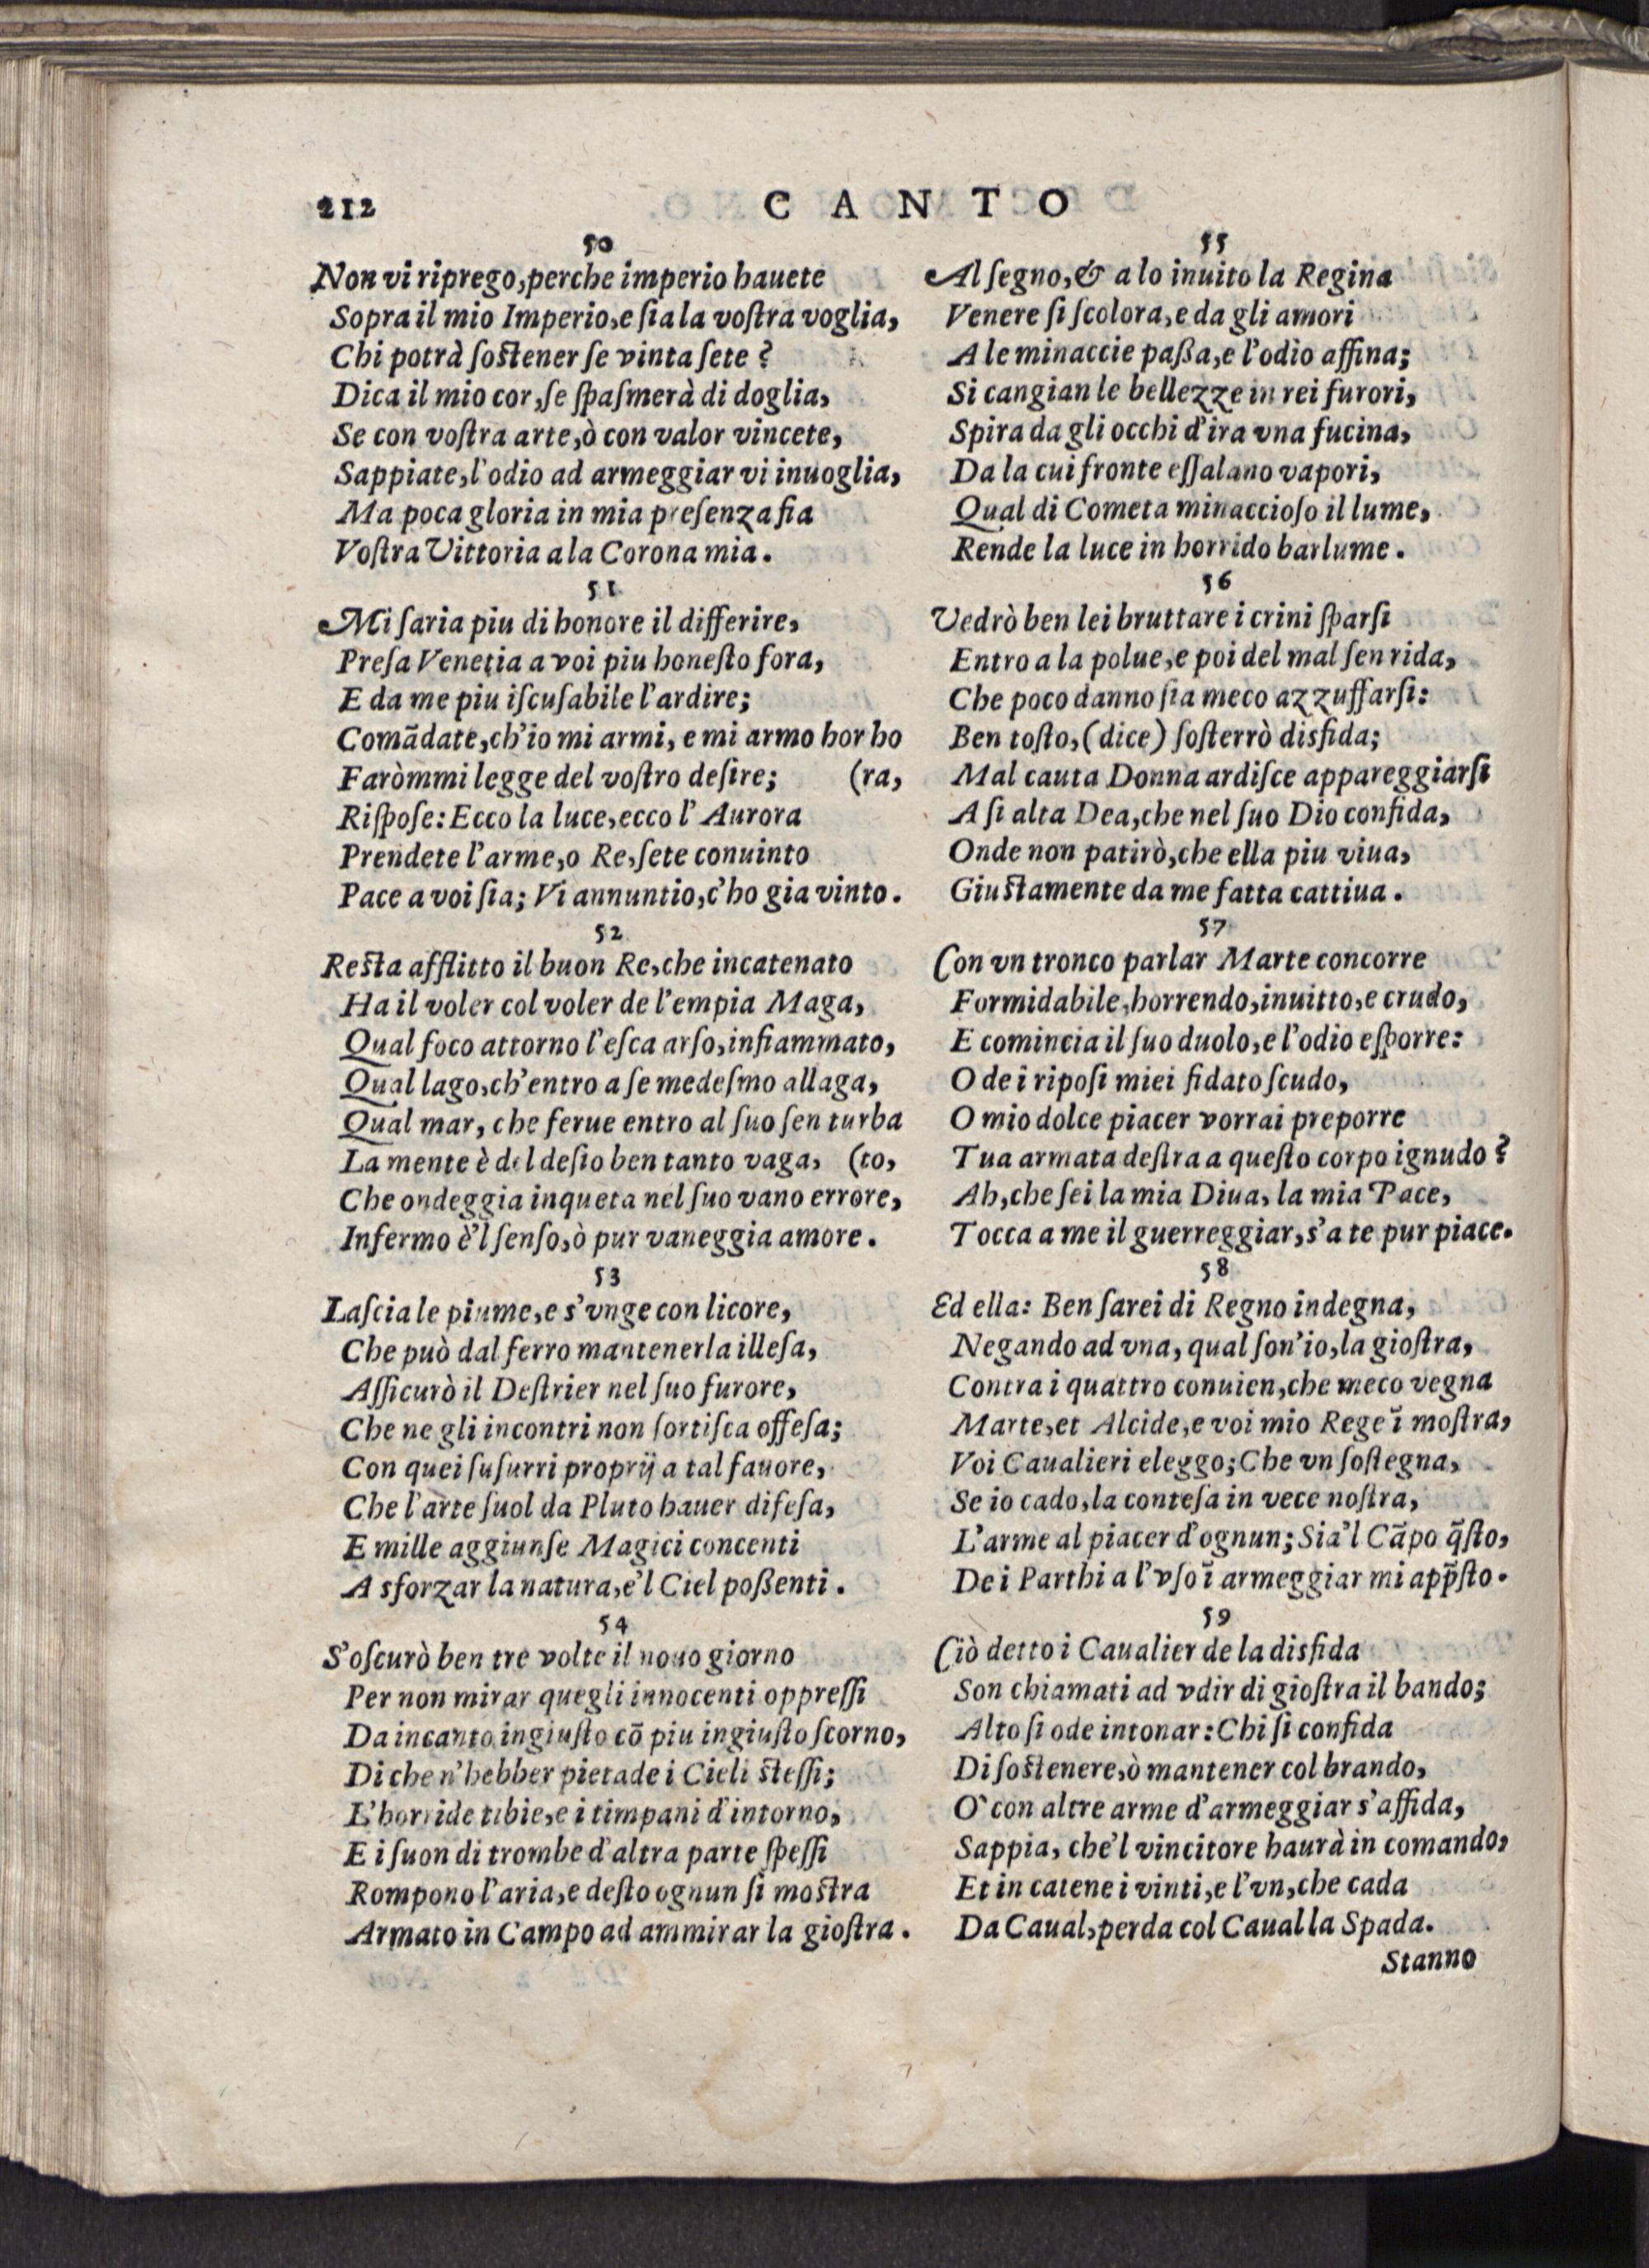 212
CANTO
50
Non vi riprego, perche imperio hauete
Sopra il mio Imperio, e ſia la voſtra voglia,
Chi potrà ſoſtener ſe vinta ſete?
Dica il mio cor, ſe ſpaſmerà di doglia,
Se con voſtra arte, ò con valor vincete,
Sappiate, l'odio ad armeggiar vi inuoglia,
Ma poca gloria in mia preſenza fia
Voſtra Vittoria a la Corona mia.
51
Mi ſaria piu di honore il differire,
Preſa Venetia a voi piu honeſto fora,
E da me piu iſcuſabile l'ardire;
Comãdate, ch'io mi armi, e mi armo hor ho
Faròmmi legge del voſtro deſire; (ra,
Riſpoſe: Ecco la luce, ecco l'Aurora
Prendete l'arme, o Re, ſete conuinto
Pace a voi ſia; Vi annuntio, c'ho gia vinto.
52
Reſta afflitto il buon Re, che incatenato
Ha il voler col voler de l'empia Maga,
Qual foco attorno l'eſca arſo, infiammato,
Qual lago, ch'entro a ſe medeſmo allaga,
Qual mar, che ferue entro al ſuo ſen turba
La mente è del deſio ben tanto vaga, (to,
Che ondeggia inqueta nel ſuo vano errore,
Infermo è'l ſenſo, ò pur vaneggia amore.
53
Laſcia le piume, e s'vnge con licore,
Che può dal ferro mantenerla illeſa,
Aſſicurò il Deſtrier nel ſuo furore,
Che ne gli incontri non ſortiſca offeſa;
Con quei ſuſurri proprij a tal fauore,
Che l'arte ſuol da Pluto hauer difeſa,
E mille aggiunſe Magici concenti
A sforzar la natura, e'l Ciel poßenti.
54
S'oſcurò ben tre volte il nouo giorno
Per non mirar quegli innocenti oppreſſi
Da incanto ingiuſto cõ piu ingiuſto ſcorno,
Di che n'hebber pietade i Cieli ſteſſi;
L'horride tibie, e i timpani d'intorno,
E i ſuon di trombe d'altra parte ſpeſſi
Rompono l'aria, e deſto ognun ſi moſtra
Armato in Campo ad ammirar la gioſtra.
55
Al ſegno, & a lo inuito la Regina
Venere ſi ſcolora, e da gli amori
A le minaccie paßa, e l'odio affina;
Si cangian le bellezze in rei furori,
Spira da gli occhi d'ira vna fucina,
Da la cui fronte eſſalano vapori,
Qual di Cometa minaccioſo il lume,
Rende la luce in horrido barlume.
56
Vedrò ben lei bruttare i crini ſparſi
Entro a la polue, e poi del mal ſen rida,
Che poco danno ſia meco azzuffarſi:
Ben toſto, (dice) ſoſterrò disfida;
Mal cauta Donna ardiſce appareggiarſi
A ſi alta Dea, che nel ſuo Dio confida,
Onde non patirò, che ella piu viua,
Giuſtamente da me fatta cattiua.
57
Con vn tronco parlar Marte concorre
Formidabile, horrendo, inuitto, e crudo,
E comincia il ſuo duolo, e l'odio eſporre:
O de i ripoſi miei fidato ſcudo,
O mio dolce piacer vorrai preporre
Tua armata deſtra a queſto corpo ignudo?
Ah, che ſei la mia Diua, la mia Pace,
Tocca a me il guerreggiar, s'a te pur piace.
58
Ed ella: Ben ſarei di Regno indegna,
Negando ad vna, qual ſon'io, la gioſtra,
Contra i quattro conuien, che meco vegna
Marte, et Alcide, e voi mio Rege ĩ moſtra,
Voi Caualieri eleggo; Che vn ſoſtegna,
Se io cado, la conteſa in vece noſtra,
L'arme al piacer d'ognun; Sia'l Cãpo q̃ſto,
De i Parthi a l'vſo ĩ armeggiar mi app̃ſto.
59
Ciò detto i Caualier de la disfida
Son chiamati ad vdir di gioſtra il bando;
Alto ſi ode intonar: Chi ſi confida
Di ſoſtenere, ò mantener col brando,
O` con altre arme d'armeggiar s'affida,
Sappia, che'l vincitore haurà in comando,
Et in catene i vinti, e l'vn, che cada
Da Caual, perda col Caual la Spada.
Stanno